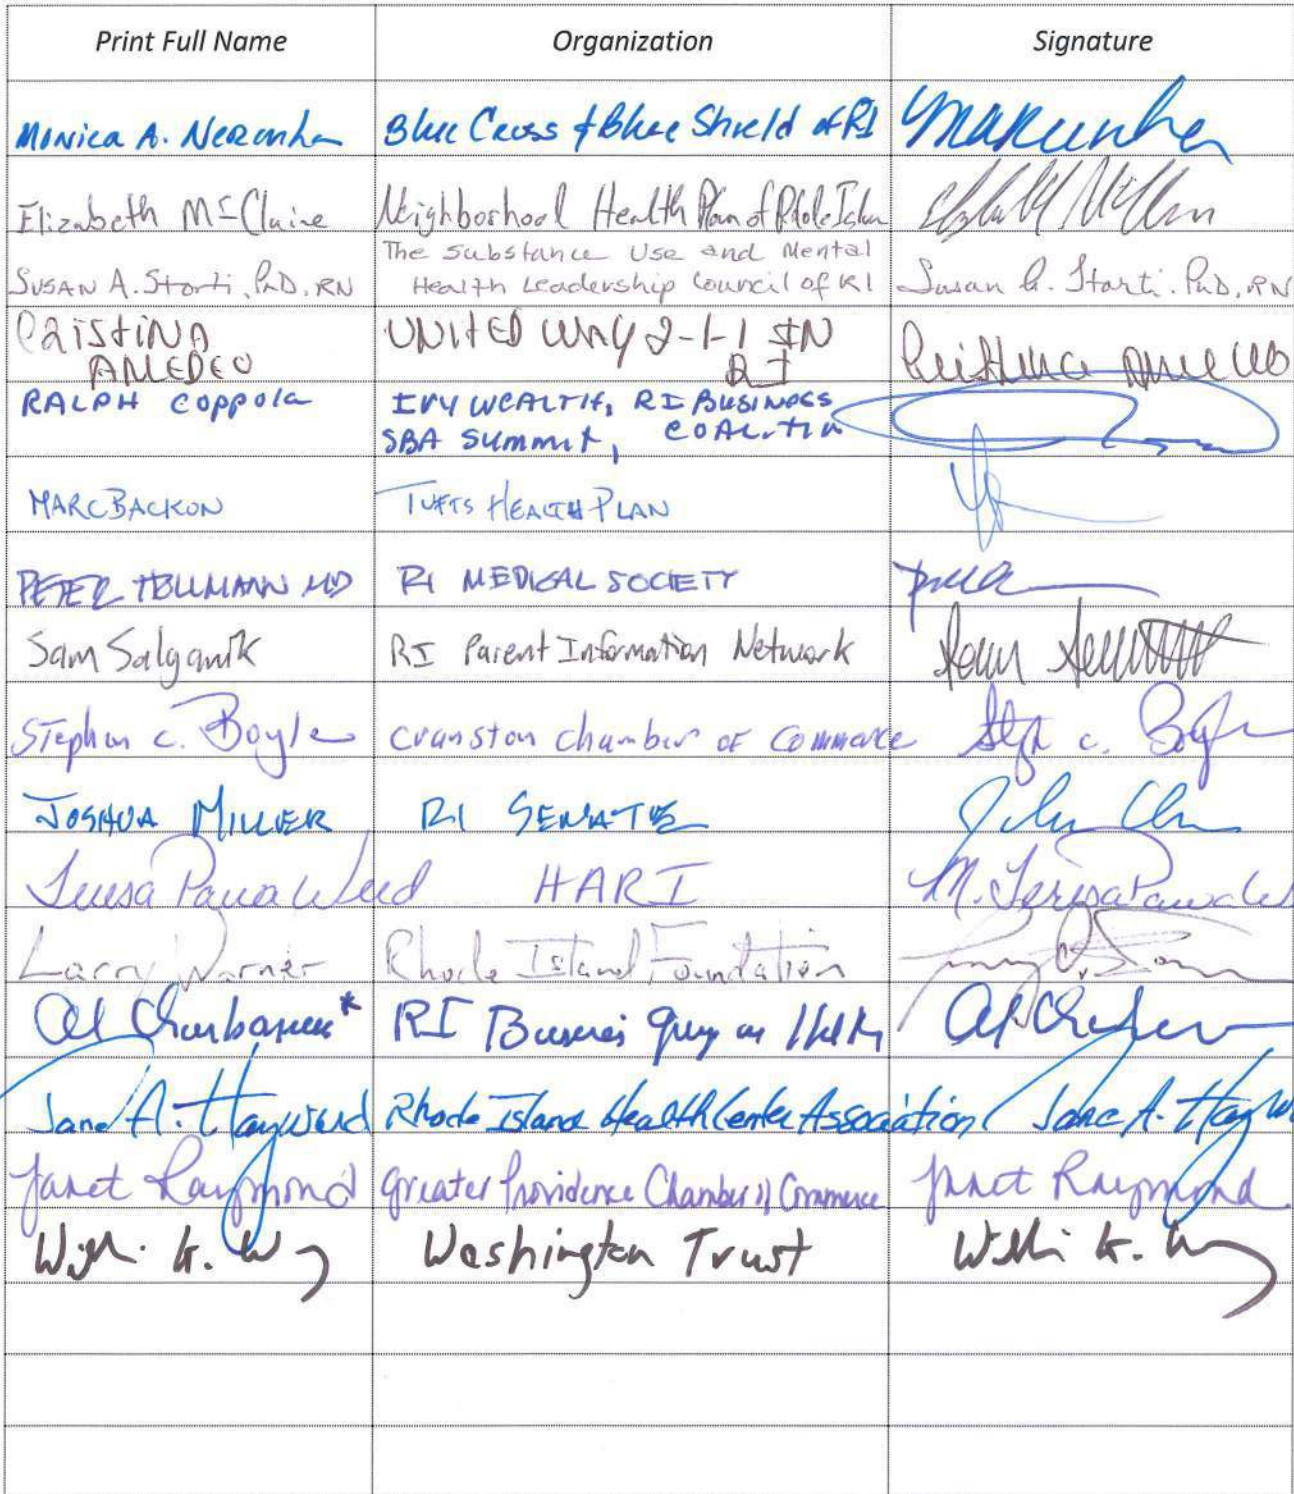 Print Full Name Organization Signature
Monica A. Neronha Blue Cross & Blue Shield of RI
Elizabeth McClaine Neighborhood Health Plan of Rhode Islan
The Substance Use and Mental
SUSAN A. Storti, PhD, RN Health Leadership Council of RI Susan A. Storti, PhD, RN
CRISTINA UNITED WAY 2-1-1 IN
AMEDEO RI
RALPH Coppola IVY WEALTH, RI BUSINESS
SBA Summit, COALITION
MARC BACKON TUFTS HEALTH PLAN
PETER HOLLMANN MD RI MEDICAL SOCIETY
Sam Salganik RI Parent Information Network Sam
Stephen C. Boyle Cranston chamber OF Commerce C. Boyle
JOSHUA MILLER RI SENATE
Teresa Paiva Weed HARI M. Teresa Paiva
Larry Warner Rhode Island Foundation
Al Charbonneau* RI Business Al
Jane A. Hayward Rhode Island Health Center Association Jane A. Hayw
Janet Raymond Greater Providence Chamber of Commerce Janet Raymond
K. Washington Trust K.